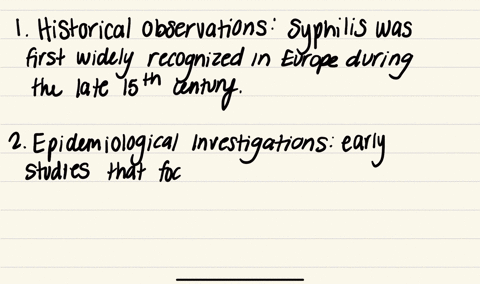 1. Historical observations: Syphilis was
first widely recognized in Europe during
the late 15th century.
2. Epidemiological Investigations: early
studies that foc